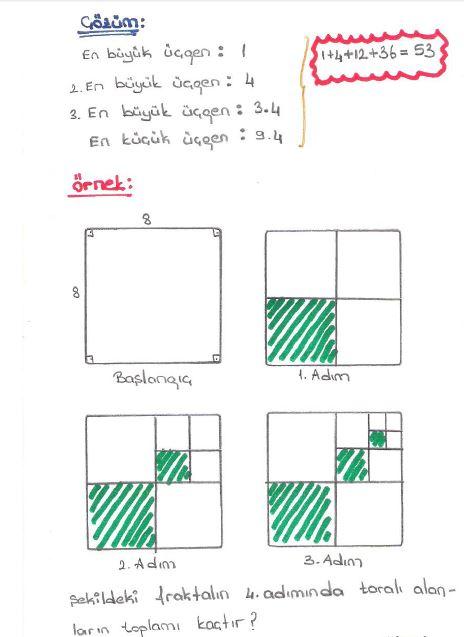 Çözüm:
En büyük üçgen : 1
2. En büyük üçgen : 4
3. En büyük üçgen : 3.4
En küçük üçgen : 9.4
1+4+12+36 = 53
örnek:
8
8
Başlangıç
1. Adım
2. Adım
3. Adım
Şekildeki fraktalın 4. adımında taralı alan-
ların toplamı kaçtır?